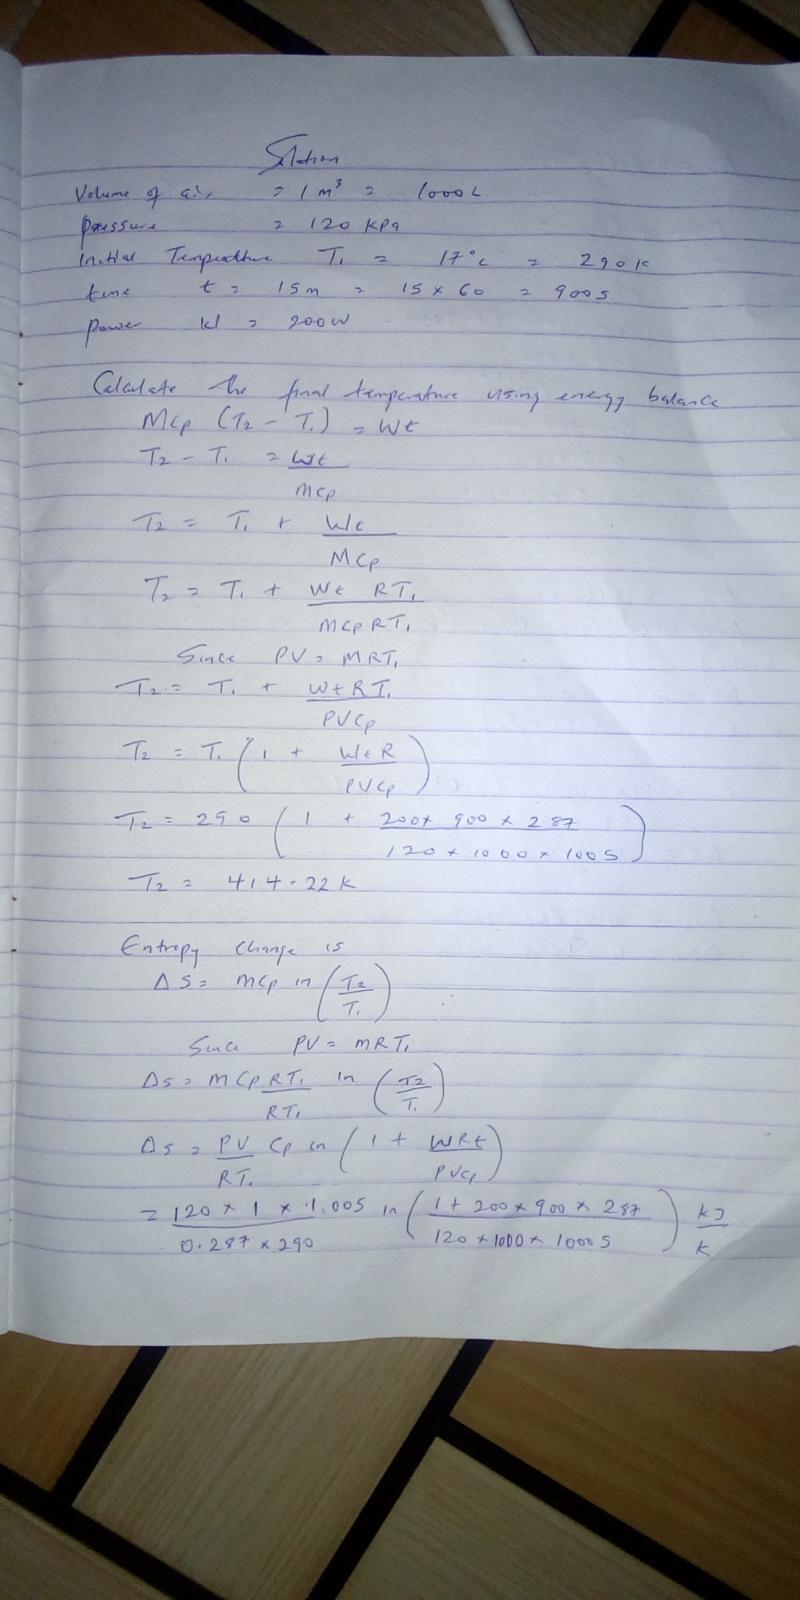 Solution
Volume of air = 1 m³ = 1000L
pressure = 120 kpa
Initial Temperature T₁ = 17°c = 290k
time t = 15m = 15 × 60 = 900s
power W = 200W
Calculate the final temperature using energy balance
Mcp (T₂ - T₁) = Wt
T₂ - T₁ = Wt
Mcp
T₂ = T₁ + Wt
MCp
T₂ = T₁ + Wt RT₁
MCpRT₁
Since PV = MRT₁
T₂ = T₁ + WtRT₁
PVCp
T₂ = T₁ ( 1 + WtR )
PVCp
T₂ = 290 ( 1 + 200 × 900 × 287 )
120 × 1000 × 1005
T₂ = 414.22k
Entropy change is
ΔS = mcp in ( T₂ )
T₁
Since PV = mRT₁
Δs = MCpRT₁ in ( T₂ )
RT₁ T₁
Δs = PV Cp in ( 1 + WRt )
RT₁ PVCp
= 120 × 1 × 1.005 in ( 1 + 200 × 900 × 287 ) kJ
0.287 × 290 120 × 1000 × 10005 K